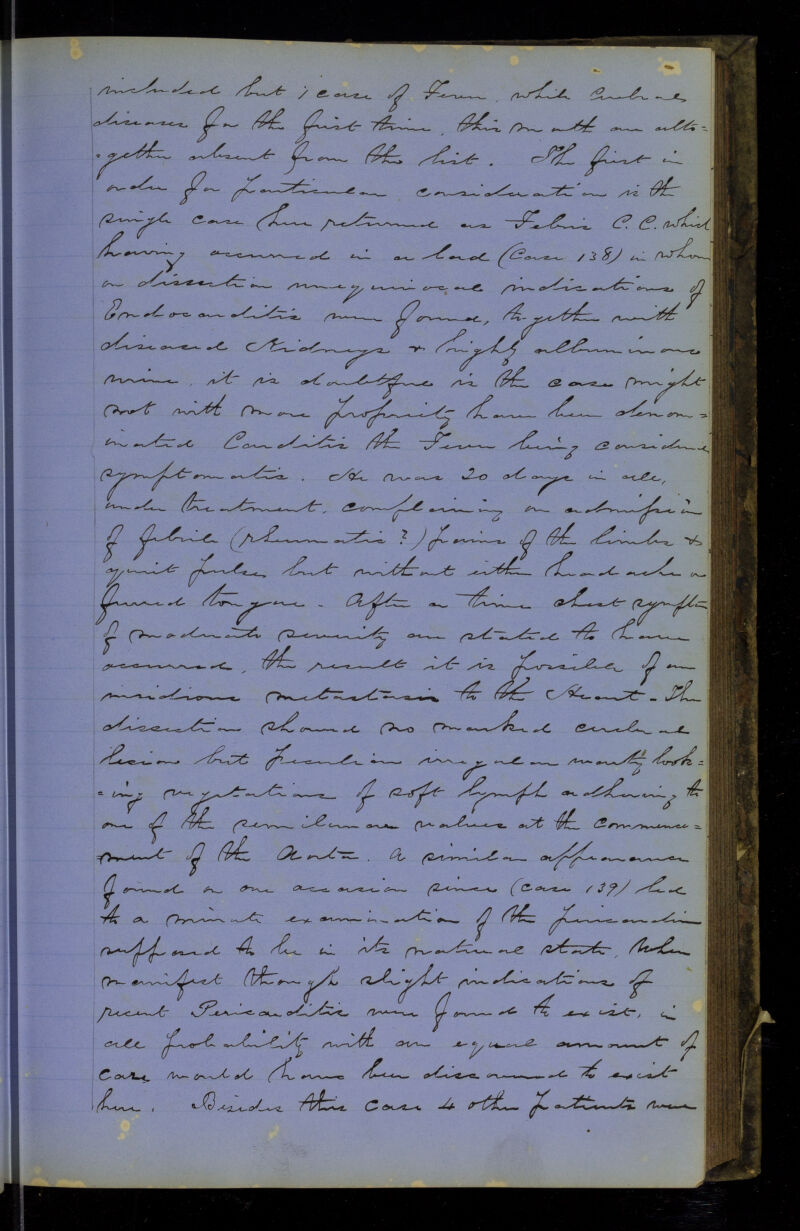 included but 1 case of Fever, while Cerebral
diseases for the first time, this month are alto=
=gether absent from the list. The first in
order for particular consideration is the
single case here returned as Febris C.C. which
having occurred in a lad (Case 138) in whom
on dissection unequivocal indications of
Endocarditis were found, together with
diseased Kidneys & highly albuminous
urine, it is doubtful is the case might
not with more propriety have been denom=
inated Carditis the Fever being considered
symptomatic. He was 20 days in all,
under treatment, complaining on admission
of febrile (rheumatic?) pains of the limbs &
quick pulse but without either headache or
furred tongue. After a time chest symptoms
of moderate severity are stated to have
occurred, the result it is possible of an
insidious metastasis to the Heart. The
dissection showed no marked cerebral
lesion but peculiar irregular warty look=
=ing vegetations of soft lymph adhering to
one of the semilunar valves at the commence=
=ment of the Aorta. A similar appearance
found on one occasion since (case 139) led
to a minute examination of the Pericardium
supposed to be in its natural state, when
manifest though slight indications of
recent Pericarditis were found to exist, in
all probability with an equal amount of
care would have been discovered to exist
here. Besides this case 4 other patients were